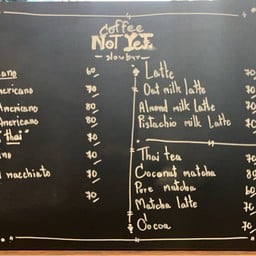 Coffee
NOT YET
- slowbar -
cano 60.-
ericano 70.-
Americano 80.-
Americano 80.-
"thai" 70.-
no 70.-
l macchiato 70.-
70.-
Latte 70
Oat milk latte 70
Almond milk latte 70
Pistachio milk Latte 70
Thai tea 70
Coconut matcha 80
Pure matcha 60
Matcha latte 70
Cocoa 70